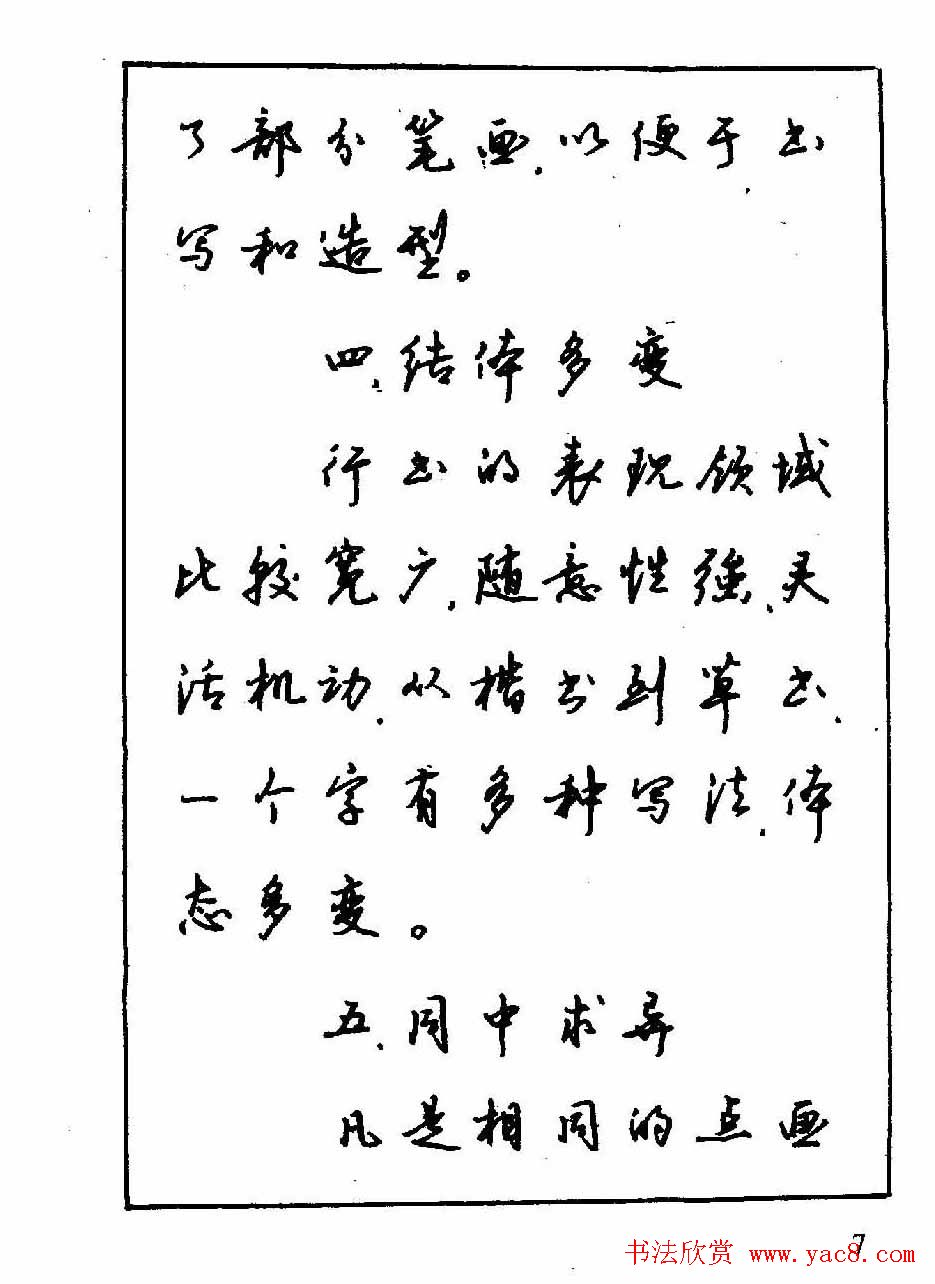 了部分笔画,以便于书
写和造型。
四、结体多变
行书的表现领域
比较宽广,随意性强,灵
活机动,从楷书到草书,
一个字有多种写法,体
态多变。
五、同中求异
凡是相同的点画
7
书法欣赏 www.yac8.com